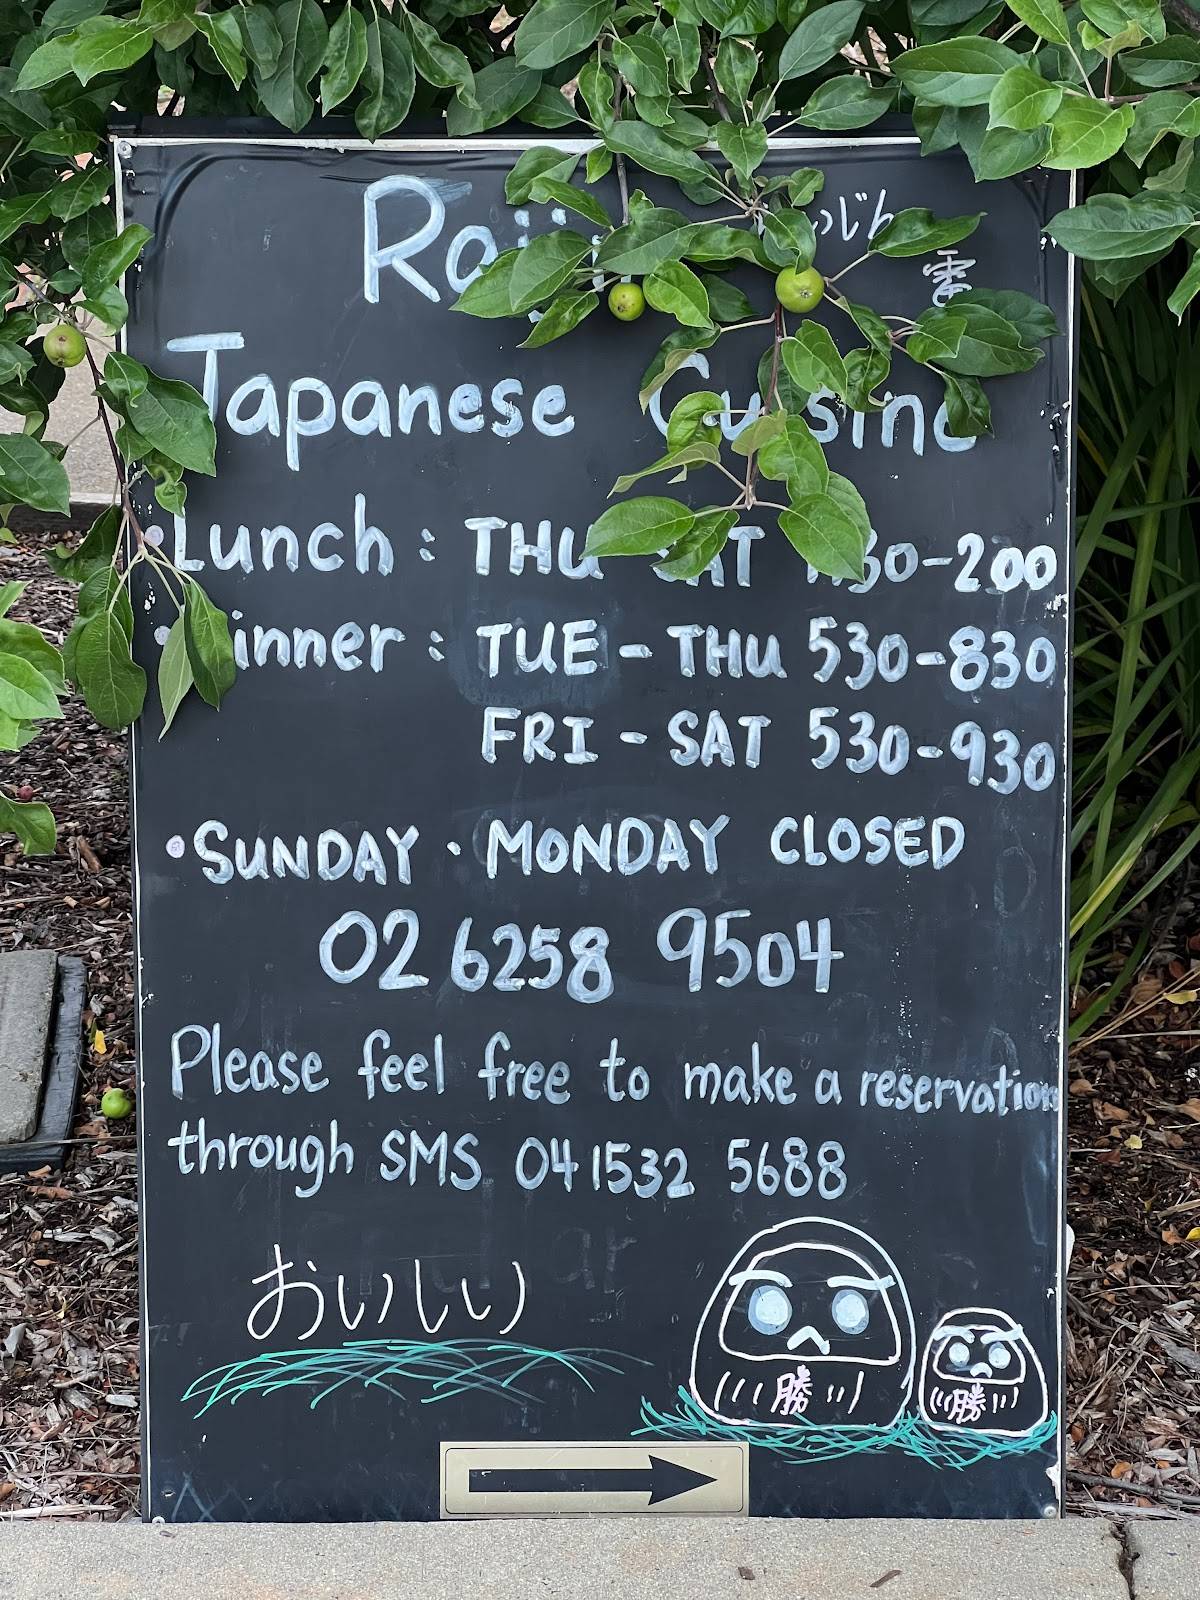 Raij
いじん
雷
Japanese Cuisine
Lunch: THU SAT 1130-200
Dinner: TUE - THU 530-830
FRI - SAT 530-930
• SUNDAY • MONDAY CLOSED
02 6258 9504
Please feel free to make a reservation
through SMS 041532 5688
おいしい
勝
勝